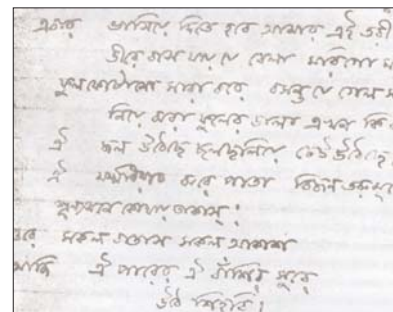 এবার ভাসিয়ে দিতে হবে আমার এই তরী
তীরে বসে যায় যে বেলা মরিগো ম
ফুল ফোটানো সারা করে বসন্ত যে গেল স
নিয়ে ঝরা ফুলের ডালা এখন কি ক
ঐ জল উঠেছে ছলছলিয়ে ঢেউ উঠেছে
ঐ মর্মরিয়া ঝরে পাতা বিজন তরুমূলে
শূন্যমনে কোথায় তাকাস্‌;
ওরে সকল বাতাস সকল আকাশ
আজি ঐ পারের ঐ বাঁশির সুরে
উঠে শিহরি।